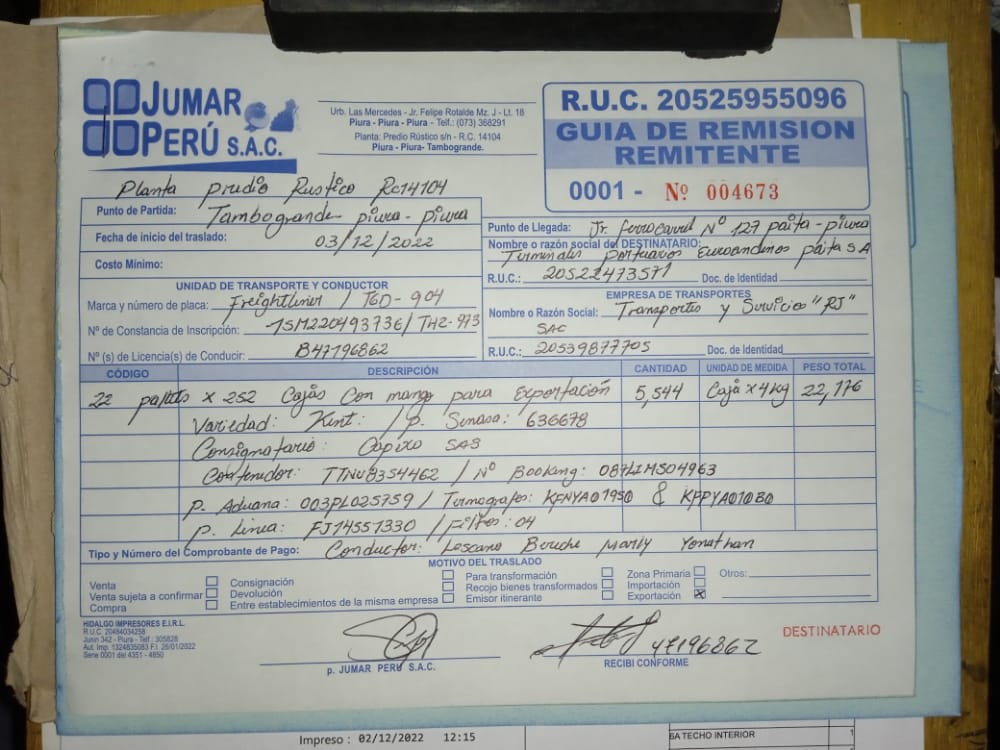 JUMAR
PERÚ S.A.C.
Urb. Las Mercedes - Jr. Felipe Rotalde Mz. J - Lt. 18
Piura - Piura - Piura - Telf.: (073) 368291
Planta: Predio Rústico s/n - R.C. 14104
Piura - Piura- Tambogrande.
R.U.C. 20525955096
GUIA DE REMISION
REMITENTE
0001 - Nº 004673
Planta Prudio Rustico Rc14104
Punto de Partida: Tambogrande - piura - piura
Fecha de inicio del traslado: 03/12/2022
Costo Mínimo:
Punto de Llegada: Jr. ferrocarril Nº 127 paita - piura
Nombre o razón social del DESTINATARIO:
Terminales portuarios Euroandinos paita SA
R.U.C.: 20522473571 Doc. de Identidad
UNIDAD DE TRANSPORTE Y CONDUCTOR
Marca y número de placa: Freightliner / T6D-904
Nº de Constancia de Inscripción: 15M220493736/TH2-973
Nº (s) de Licencia(s) de Conducir: B47196862
EMPRESA DE TRANSPORTES
Nombre o Razón Social: Transportes y Servicios "RJ"
SAC
R.U.C.: 20539877705 Doc. de Identidad
CÓDIGO DESCRIPCIÓN CANTIDAD UNIDAD DE MEDIDA PESO TOTAL
22 pallets x 252 Cajas Con mango para Exportación 5,544 Caja x 4kg 22,176
Variedad: Kent: / p. Senasa: 636678
Consignatario: Capixo SAS
Contenedor: TTNU8354462 / Nº Booking: 087LIMS04963
p. Aduana: 003PL025759 / Termografos: KFNYA01950 & KFPYA010B0
p. Linea: FJ14551330 / Filtros: 04
Tipo y Número del Comprobante de Pago: Conductor: Lescano Beruche Marly Yonathan
MOTIVO DEL TRASLADO
Venta
Venta sujeta a confirmar
Compra
Consignación
Devolución
Entre establecimientos de la misma empresa
Para transformación
Recojo bienes transformados
Emisor itinerante
Zona Primaria
Importación
Exportación X
Otros:
HIDALGO IMPRESORES E.I.R.L.
R.U.C. 20484034258
Junin 342 - Piura - Telf.: 305828
Aut. Imp. 1324835083 F.I. 26/01/2022
Serie 0001 del 4351 - 4850
p. JUMAR PERÚ S.A.C.
47196862
RECIBI CONFORME
DESTINATARIO
Impreso : 02/12/2022 12:15
6A TECHO INTERIOR
1